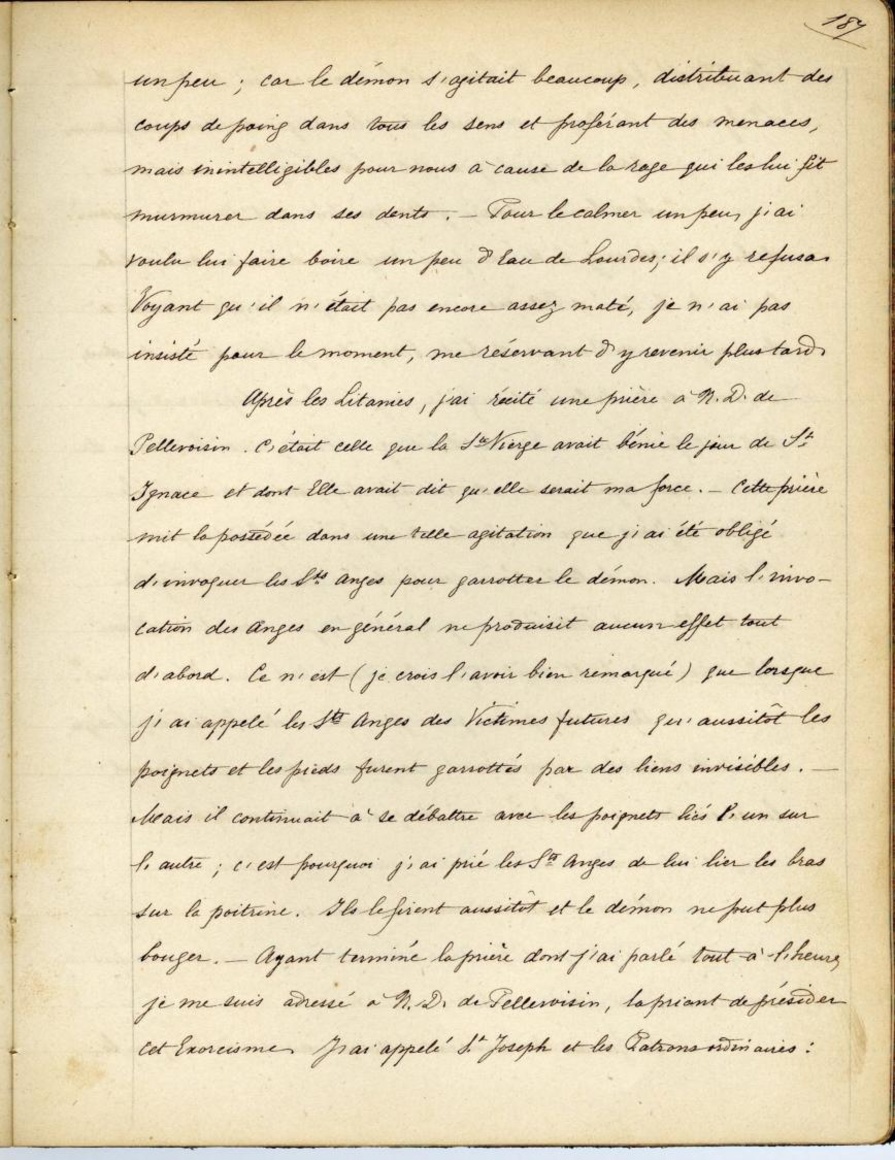 187
un peu ; car le démon s'agitait beaucoup, distribuant des
coups de poing dans tous les sens et proférant des menaces,
mais inintelligibles pour nous à cause de la rage qui les lui fit
murmurer dans ses dents. — Pour le calmer un peu, j'ai
voulu lui faire boire un peu d'Eau de Lourdes; il s'y refusa.
Voyant qu'il n'était pas encore assez maté, je n'ai pas
insisté pour le moment, me réservant d'y revenir plus tard.
Après les Litanies, j'ai récité une prière à N. D. de
Pellevoisin. C'était celle que la Ste Vierge avait bénie le jour de St
Ignace et dont Elle avait dit qu'elle serait ma force. — Cette prière
mit la possédée dans une telle agitation que j'ai été obligé
d'invoquer les Sts Anges pour garrotter le démon. Mais l'invo-
cation des Anges en général ne produisit aucun effet tout
d'abord. Ce n'est (je crois l'avoir bien remarqué) que lorsque
j'ai appelé les Sts Anges des Victimes futures qu'aussitôt les
poignets et les pieds furent garrottés par des liens invisibles. —
Mais il continuait à se débattre avec les poignets liés l'un sur
l'autre ; c'est pourquoi j'ai prié les Sts Anges de lui lier les bras
sur la poitrine. Ils le firent aussitôt et le démon ne put plus
bouger. — Ayant terminé la prière dont j'ai parlé tout à l'heure,
je me suis adressé à N. D. de Pellevoisin, la priant de présider
cet Exorcisme. J'ai appelé St Joseph et les Patrons ordinaires :